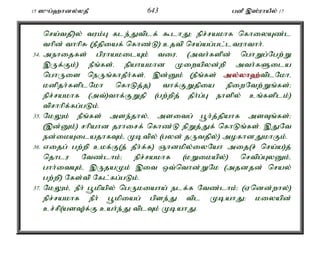 15 ஸுப்ஹானல்லதீ 643 பனீ இஸ்ராயீல் 17
செய்வதி)ல் வரம்பு கடந்துவிடக் கூடாது; நிச்சயமாக கொலையுண்ட
வரின் வாரிசு (நீதியைக் கொண்டு) உதவி செய்யப்பட்டவராவார்.
34. அநாதைகள் பிராயமடையும் வரை, (அவர்களின் பொறுப்பேற்று
இருக்கும்) நீங்கள், நியாயமான முறையிலன்றி அவர்களுடைய
பொருளை நெருங்காதீர்கள், இன்னும் (நீங்கள் அல்லாஹ்விடமோ,
மனிதர்களிடமோ கொடுத்த) வாக்குறுதியை நிறைவேற்றுங்கள்;
நிச்சயமாக (அவ்)வாக்குறுதி (பற்றித் தீர்ப்பு நாளில் உங்களிடம்)
விசாரிக்கப்படும்.
35. மேலும் நீங்கள் அளந்தால், அளவைப் பூர்த்தியாக அளவுங்கள்;
(இன்னும்) சரியான தராசைக் கொண்டு நிறுத்துக் கொடுங்கள். இதுவே
நன்மையுடையதாகவும், முடிவில் (பலன் தருவதில்) அழகானதுமாகும்.
36. எதைப் பற்றி உமக்கு(த் தீர்க்க) ஞானமில்லையோ அதை(ச் செய்யத்)
தொடர வேண்டாம்; நிச்சயமாக (மறுமையில்) செவிப்புலனும்,
பார்வையும், இருதயமும் இவை ஒவ்வொன்றுமே (அதனதன் செயல்
பற்றி) கேள்வி கேட்கப்படும்.
37. மேலும், நீர் பூமியில் பெருமையாய் நடக்க வேண்டாம்; (ஏனென்றால்)
நிச்சயமாக நீர் பூமியைப் பிளந்து விட முடியாது; மலையின்
உச்சி(யளவு)க்கு உயர்ந்து விடவும் முடியாது.